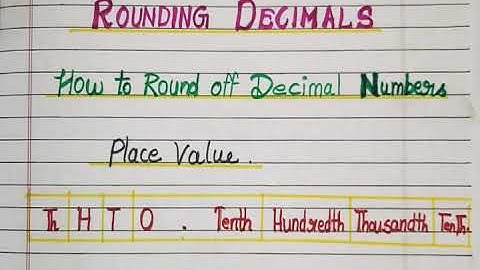 ROUNDING DECIMALS
How to Round off Decimal Numbers
Place Value.
Th H T O . Tenth Hundredth Thousandth TenTh.